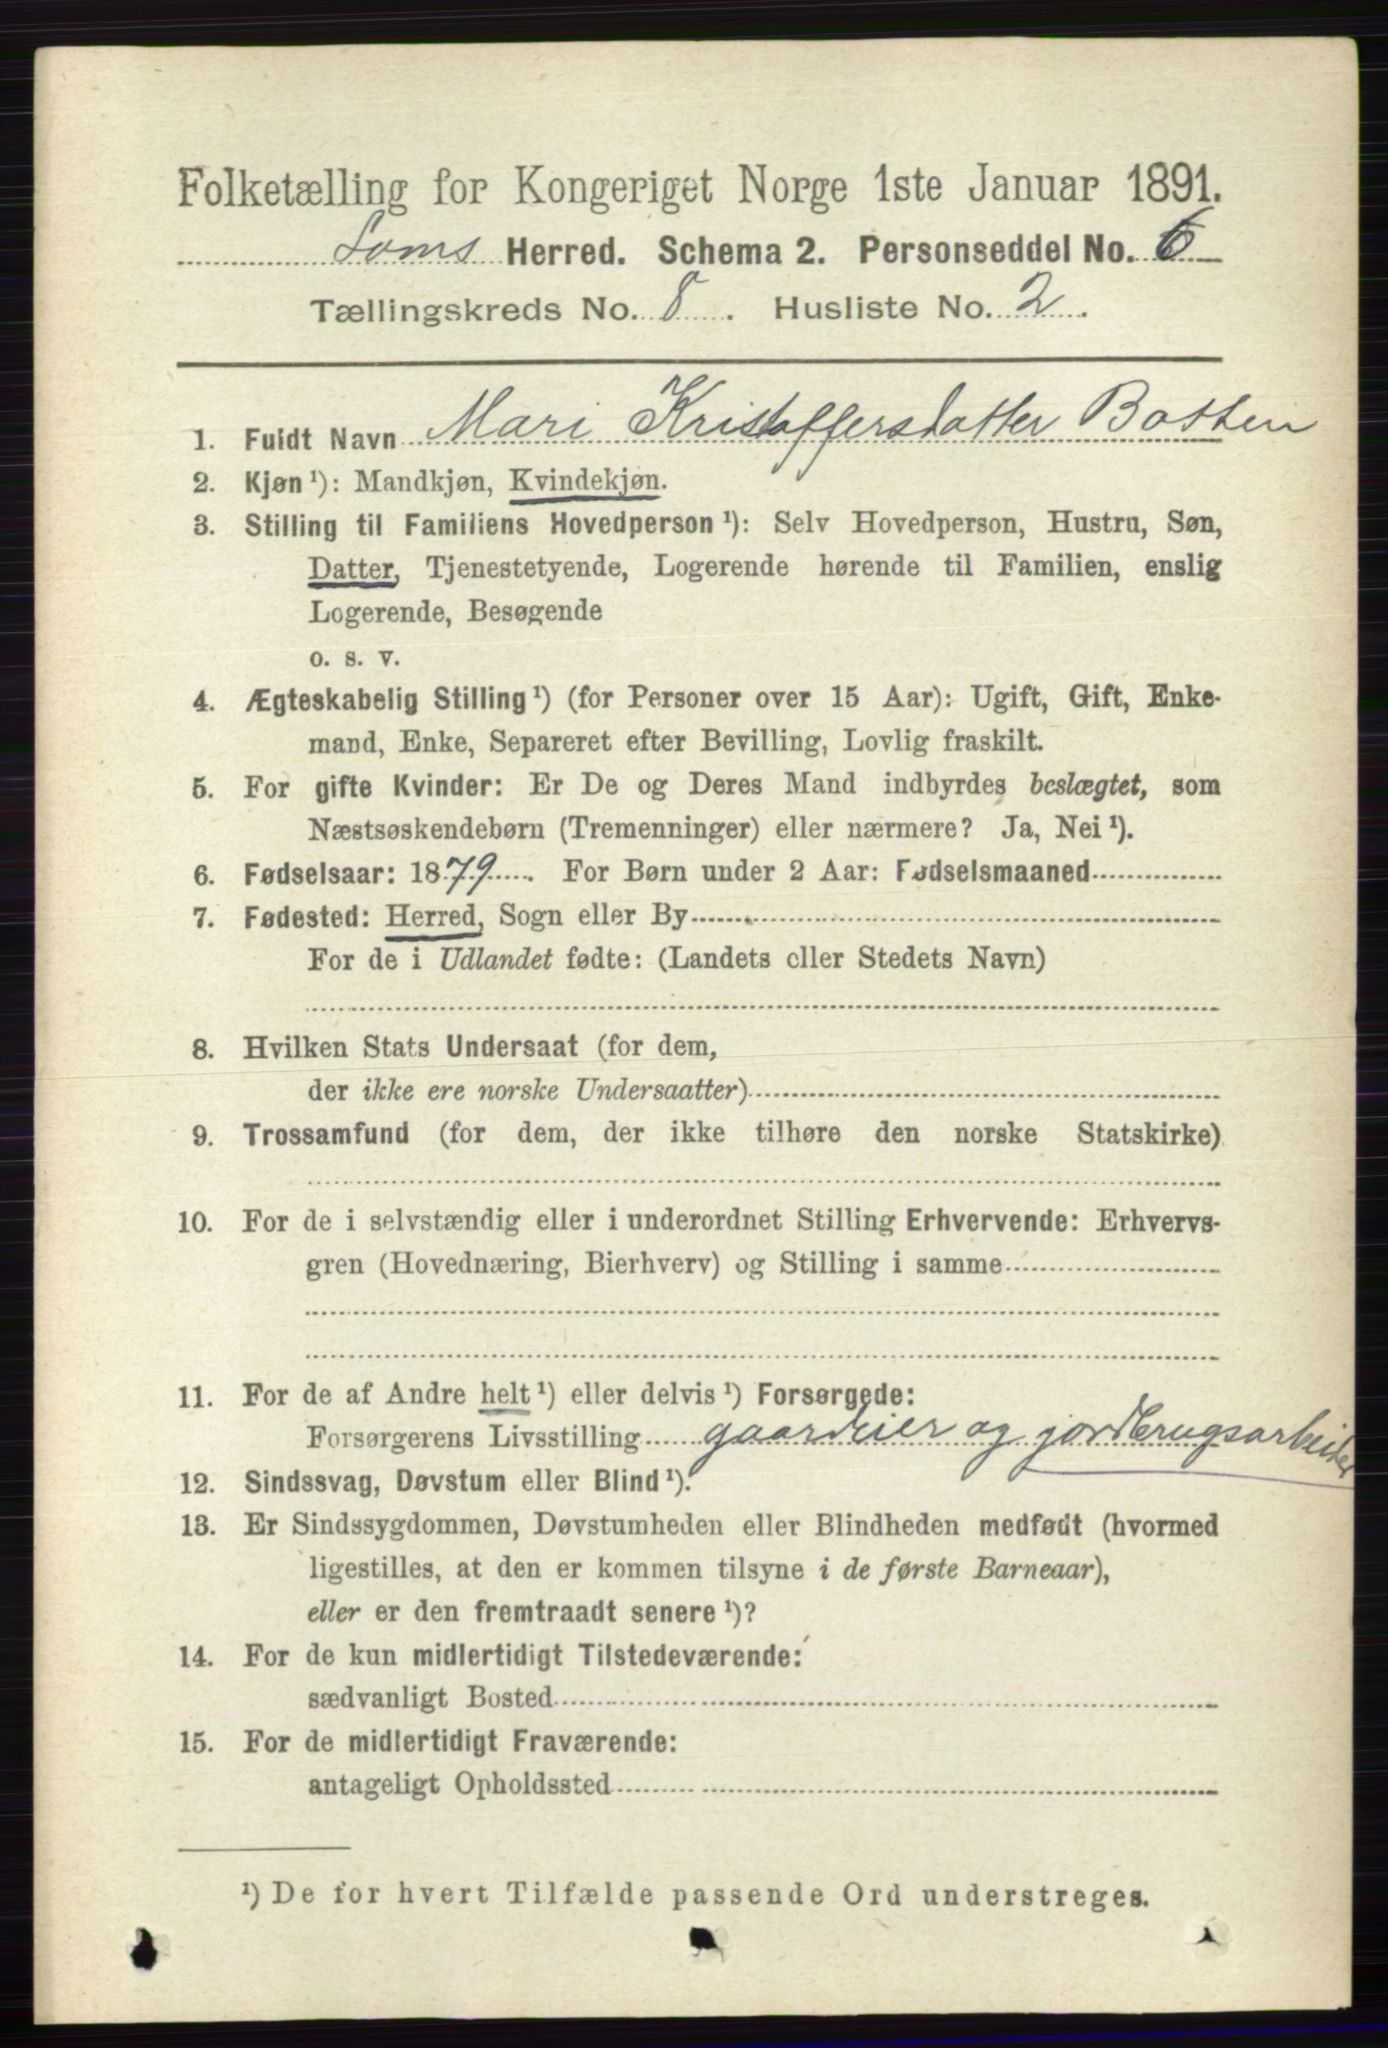 Folketælling for Kongeriget Norge 1ste Januar 1891.
Loms Herred. Schema 2. Personseddel No. 6
Tællingskreds No. 8. Husliste No. 2.
1. Fuldt Navn Mari Kristoffersdatter Botten
2. Kjøn ¹): Mandkjøn, Kvindekjøn.
3. Stilling til Familiens Hovedperson ¹): Selv Hovedperson, Hustru, Søn,
Datter, Tjenestetyende, Logerende hørende til Familien, enslig
Logerende, Besøgende
o. s. v.
4. Ægteskabelig Stilling ¹) (for Personer over 15 Aar): Ugift, Gift, Enke-
mand, Enke, Separeret efter Bevilling, Lovlig fraskilt.
5. For gifte Kvinder: Er De og Deres Mand indbyrdes beslægtet, som
Næstsøskendebørn (Tremenninger) eller nærmere? Ja, Nei ¹).
6. Fødselsaar: 1879. For Børn under 2 Aar: Fødselsmaaned
7. Fødested: Herred, Sogn eller By
For de i Udlandet fødte: (Landets eller Stedets Navn)
8. Hvilken Stats Undersaat (for dem,
der ikke ere norske Undersaatter)
9. Trossamfund (for dem, der ikke tilhøre den norske Statskirke)
10. For de i selvstændig eller i underordnet Stilling Erhvervende: Erhvervs-
gren (Hovednæring, Bierhverv) og Stilling i samme
11. For de af Andre helt ¹) eller delvis ¹) Forsørgede:
Forsørgerens Livsstilling gaardeier og jordbrugsarbeider
12. Sindssvag, Døvstum eller Blind ¹).
13. Er Sindssygdommen, Døvstumheden eller Blindheden medfødt (hvormed
ligestilles, at den er kommen tilsyne i de første Barneaar),
eller er den fremtraadt senere ¹)?
14. For de kun midlertidigt Tilstedeværende:
sædvanligt Bosted
15. For de midlertidigt Fraværende:
antageligt Opholdssted
¹) De for hvert Tilfælde passende Ord understreges.